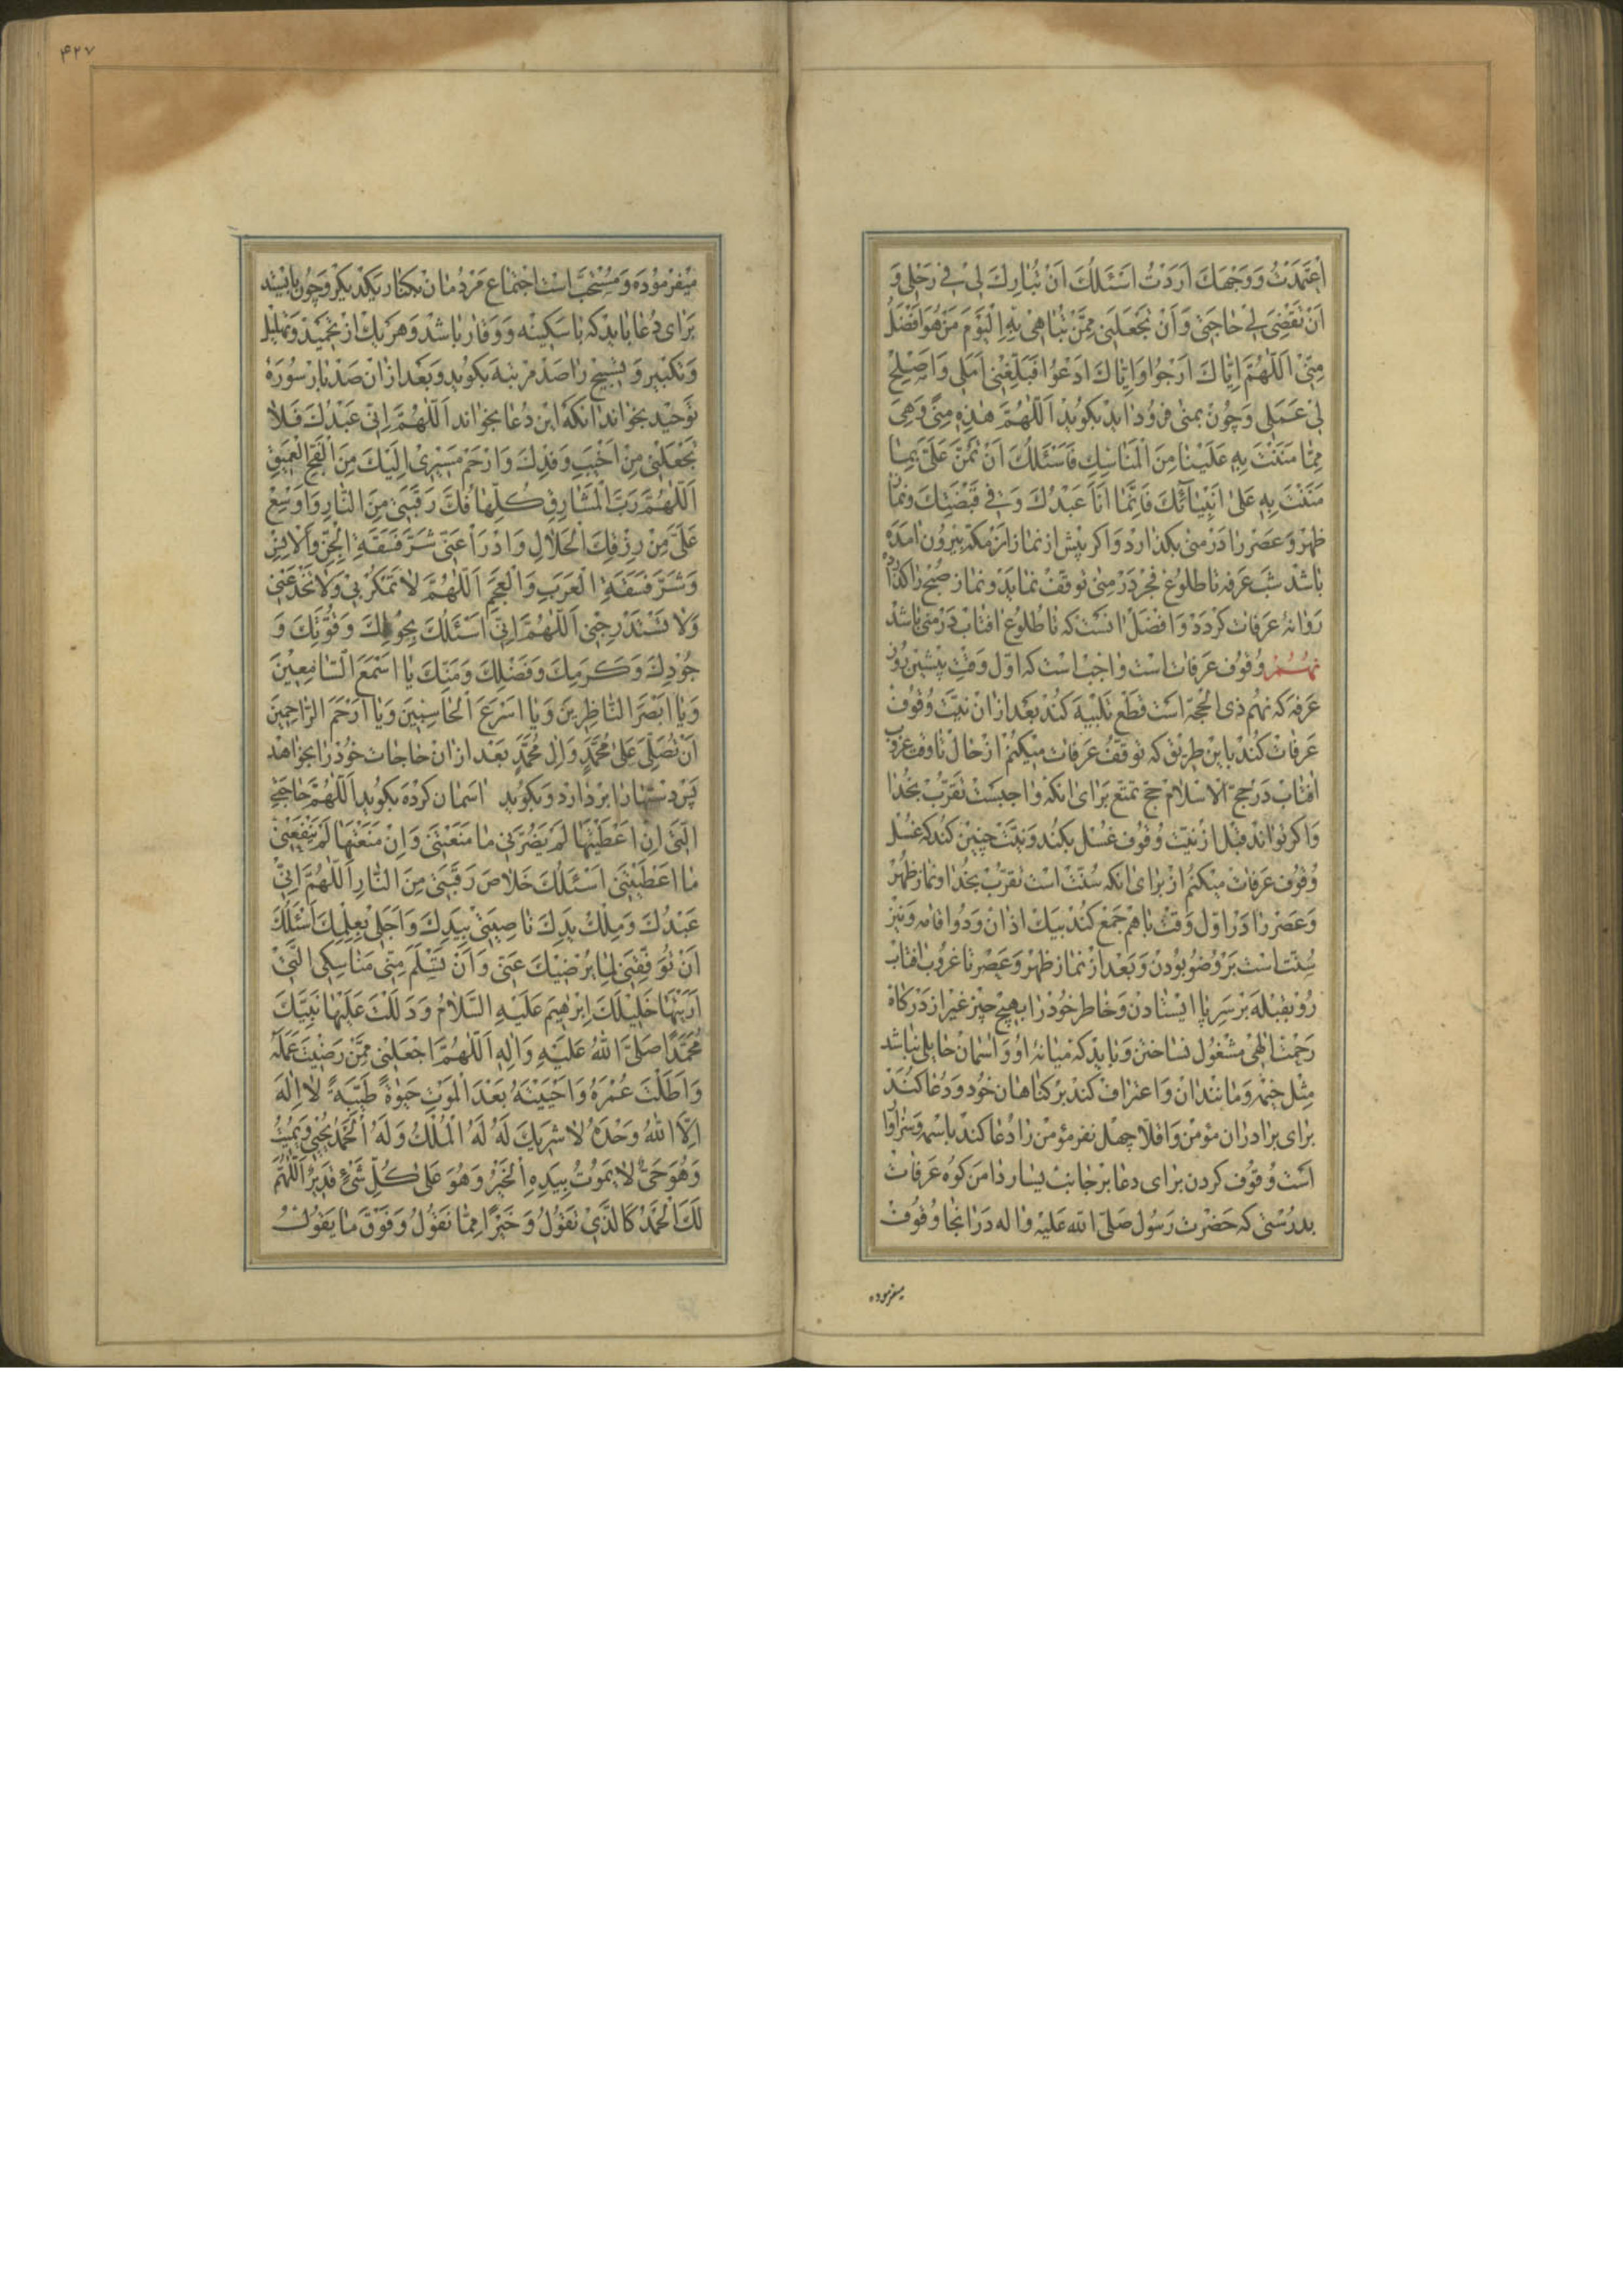 اِعْتَمَدْتُ وَوَجْهَكَ اَرَدْتُ اَسْئَلُكَ اَنْ تُبارِكَ لی فی رَحْلی وَ
اَنْ تَقْضِیَ لی حاجَتی وَاَنْ تَجْعَلَنی مِمَّنْ تُباهی بِهِ الْیَوْمَ مَنْ هُوَ اَفْضَلُ
مِنّی اَللّهُمَّ اِیّاكَ اَرْجُوا وَاِیّاكَ اَدْعُوا فَبَلِّغْنی اَمَلی وَاَصْلِحْ
لی عَمَلی وَچون بمنی فرود اید بکوید اَللّهُمَّ هٰذِهِ مِنیً وَهِیَ
مِمّا مَنَنْتَ بِهِ عَلَیْنا مِنَ الْمَناسِكِ فَاَسْئَلُكَ اَنْ تَمُنَّ عَلَیَّ بِما
مَنَنْتَ بِهِ عَلیٰ اَنْبِیائِكَ فَاِنَّما اَنَا عَبْدُكَ وَفی قَبْضَتِكَ ونماز
ظهر وعصر را در منی بکذارد واکر پیش از نماز از مکه بیرون امده
باشد شب عرفه تا طلوع فجر در منی توقف نماید ونماز صبح را کذارده
روانهٔ عرفات کردد وافضل انست که تا طلوع افتاب در منی باشد
نهم وقوف عرفات است واجب است که اول وقت پیشین روز
عرفه که نهم ذی الحجه است قطع تلبیه کند بعد از ان نیت وقوف
عرفات کند باین طریق که توقف عرفات میکنم از حال تا وقت غروب
افتاب در حج الاسلام حج تمتع برای انکه واجبست تقرب بخدا
واکر تواند قبل از نیت وقوف غسل بکند ونیت چنین کند که غسل
وقوف عرفات میکنم از برای انکه سنت است تقرب بخدا ونماز ظهر
وعصر را در اول وقت باهم جمع کند بیك اذان ودو اقامه ونیز
سنت است بر وضو بودن وبعد از نماز ظهر وعصر تا غروب افتاب
رو بقبله بر سر پا ایستادن وخاطر خود را بهیچ چیز غیر از درکاه
رحمت الهی مشغول نساختن وباید که میانهٔ او واسمان حایلی نباشد
مثل خیمه ومانند ان واعتراف کند بر کناهان خود ودعا کند
برای برادران مؤمن واقلا چهل نفر مؤمن را دعا کند باسم وسزاوار
است وقوف کردن برای دعا بر جانب یسار دامن کوه عرفات
بدرستی که حضرت رسول صلی الله علیه واله در انجا وقوف
میفرموده
۴۲۷
میفرموده ومستحب است اجتماع مردمان بکنار یکدیکر وچون بایستد
برای دعا باید که با سکینه ووقار باشد وهر یك از تحمید وتهلیل
وتکبیر وتسبیح را صد مرتبه بکوید وبعد از ان صد بار سورهٔ
توحید بخواند انکه این دعا بخواند اَللّهُمَّ اِنّی عَبْدُكَ فَلا
تَجْعَلْنی مِنْ اَخْیَبِ وَفْدِكَ وَارْحَمْ مَسیری اِلَیْكَ مِنَ الْفَجِّ الْعَمیقِ
اَللّهُمَّ رَبَّ الْمَشارِقِ كُلِّها فُكَّ رَقَبَتی مِنَ النّارِ وَاَوْسِعْ
عَلَیَّ مِنْ رِزْقِكَ الْحَلالِ وَادْرَأْ عَنّی شَرَّ فَسَقَةِ الْجِنِّ وَالْاِنْسِ
وَشَرَّ فَسَقَةِ الْعَرَبِ وَالْعَجَمِ اَللّهُمَّ لا تَمْكُرْ بی وَلا تَخْدَعْنی
وَلا تَسْتَدْرِجْنی اَللّهُمَّ اِنّی اَسْئَلُكَ بِحَوْلِكَ وَقُوَّتِكَ وَ
جُودِكَ وَكَرَمِكَ وَفَضْلِكَ وَمَنِّكَ یا اَسْمَعَ السّامِعینَ
وَیا اَبْصَرَ النّاظِرینَ وَیا اَسْرَعَ الْحاسِبینَ وَیا اَرْحَمَ الرّاحِمینَ
اَنْ تُصَلِّیَ عَلیٰ مُحَمَّدٍ وَالِ مُحَمَّدٍ بعد از ان حاجات خود را بخواهد
پس دستها را بردارد وبکوید اسمان کرده بکوید اَللّهُمَّ حاجَتی
الَّتی اِنْ اَعْطَیْتَها لَمْ یَضُرَّنی ما مَنَعْتَنی وَاِنْ مَنَعْتَها لَمْ یَنْفَعْنی
ما اَعْطَیْتَنی اَسْئَلُكَ خَلاصَ رَقَبَتی مِنَ النّارِ اَللّهُمَّ اِنّی
عَبْدُكَ وَمِلْكُ یَدِكَ ناصِیَتی بِیَدِكَ وَاَجَلی بِعِلْمِكَ اَسْئَلُكَ
اَنْ تُوَفِّقَنی لِما یُرْضیكَ عَنّی وَاَنْ تَسَلَّمَ مِنّی مَناسِكِیَ الَّتی
اَرَیْتَها خَلیلَكَ اِبْرٰهیمَ عَلَیْهِ السَّلامُ وَدَلَلْتَ عَلَیْها نَبِیَّكَ
مُحَمَّدًا صَلَّی اللهُ عَلَیْهِ وَالِهِ اَللّهُمَّ اجْعَلْنی مِمَّنْ رَضیتَ عَمَلَهُ
وَاَطَلْتَ عُمْرَهُ وَاَحْیَیْتَهُ بَعْدَ الْمَوْتِ حَیٰوةً طَیِّبَةً لا اِلٰهَ
اِلَّا اللهُ وَحْدَهُ لا شَریكَ لَهُ لَهُ الْمُلْكُ وَلَهُ الْحَمْدُ یُحْیی وَیُمیتُ
وَهُوَ حَیٌّ لا یَمُوتُ بِیَدِهِ الْخَیْرُ وَهُوَ عَلیٰ كُلِّ شَیْءٍ قَدیرٌ اَللّهُمَّ
لَكَ الْحَمْدُ كَالَّذی تَقُولُ وَخَیْرًا مِمّا نَقُولُ وَفَوْقَ ما یَقُولُ